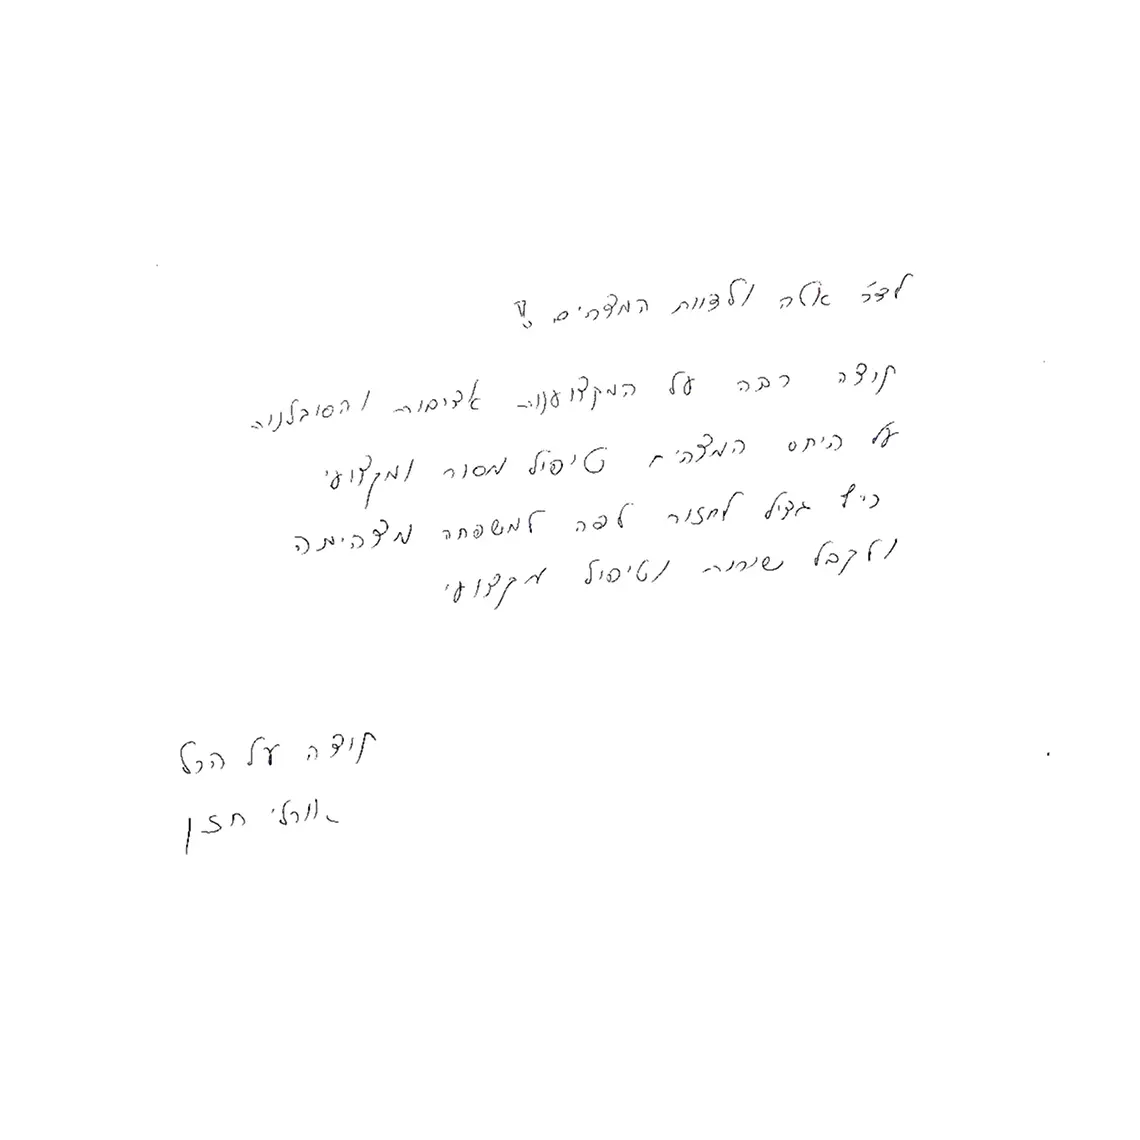 לד״ר אלה ולצוות המדהים !!
תודה רבה על המקצוענות אדיבות והסובלנות
על היחס המדהים טיפול מסור ומקצועי
כיף גדול לחזור לפה למשפחה מדהימה
ולקבל שירות וטיפול מקצועי
תודה על הכל
אורלי חזן